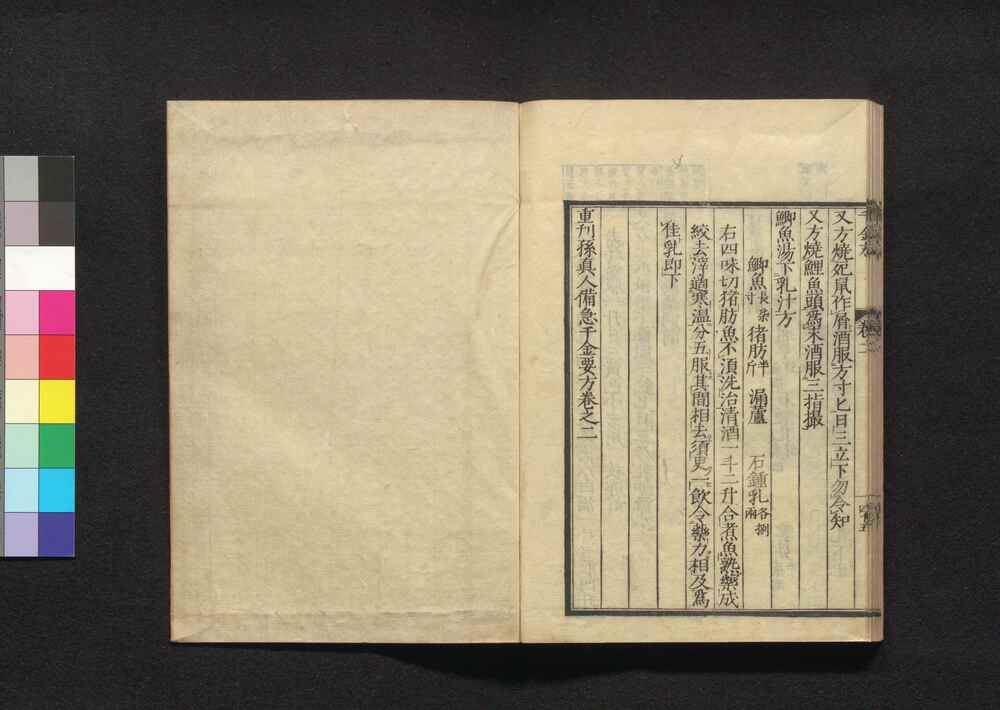 又方燒死鼠作屑酒服方寸匕日三立下勿令知
又方燒鯉魚頭爲末酒服三指撮
鯽魚湯下乳汁方
鯽魚長柒寸猪肪半斤漏蘆 石鍾乳各捌兩
右四味切猪肪魚不須洗治清酒一斗二升合煮魚熟藥成
絞去滓適寒温分五服其間相去須更一飲令藥力相及爲
佳乳即下
重刊孫真人備急千金要方卷之二